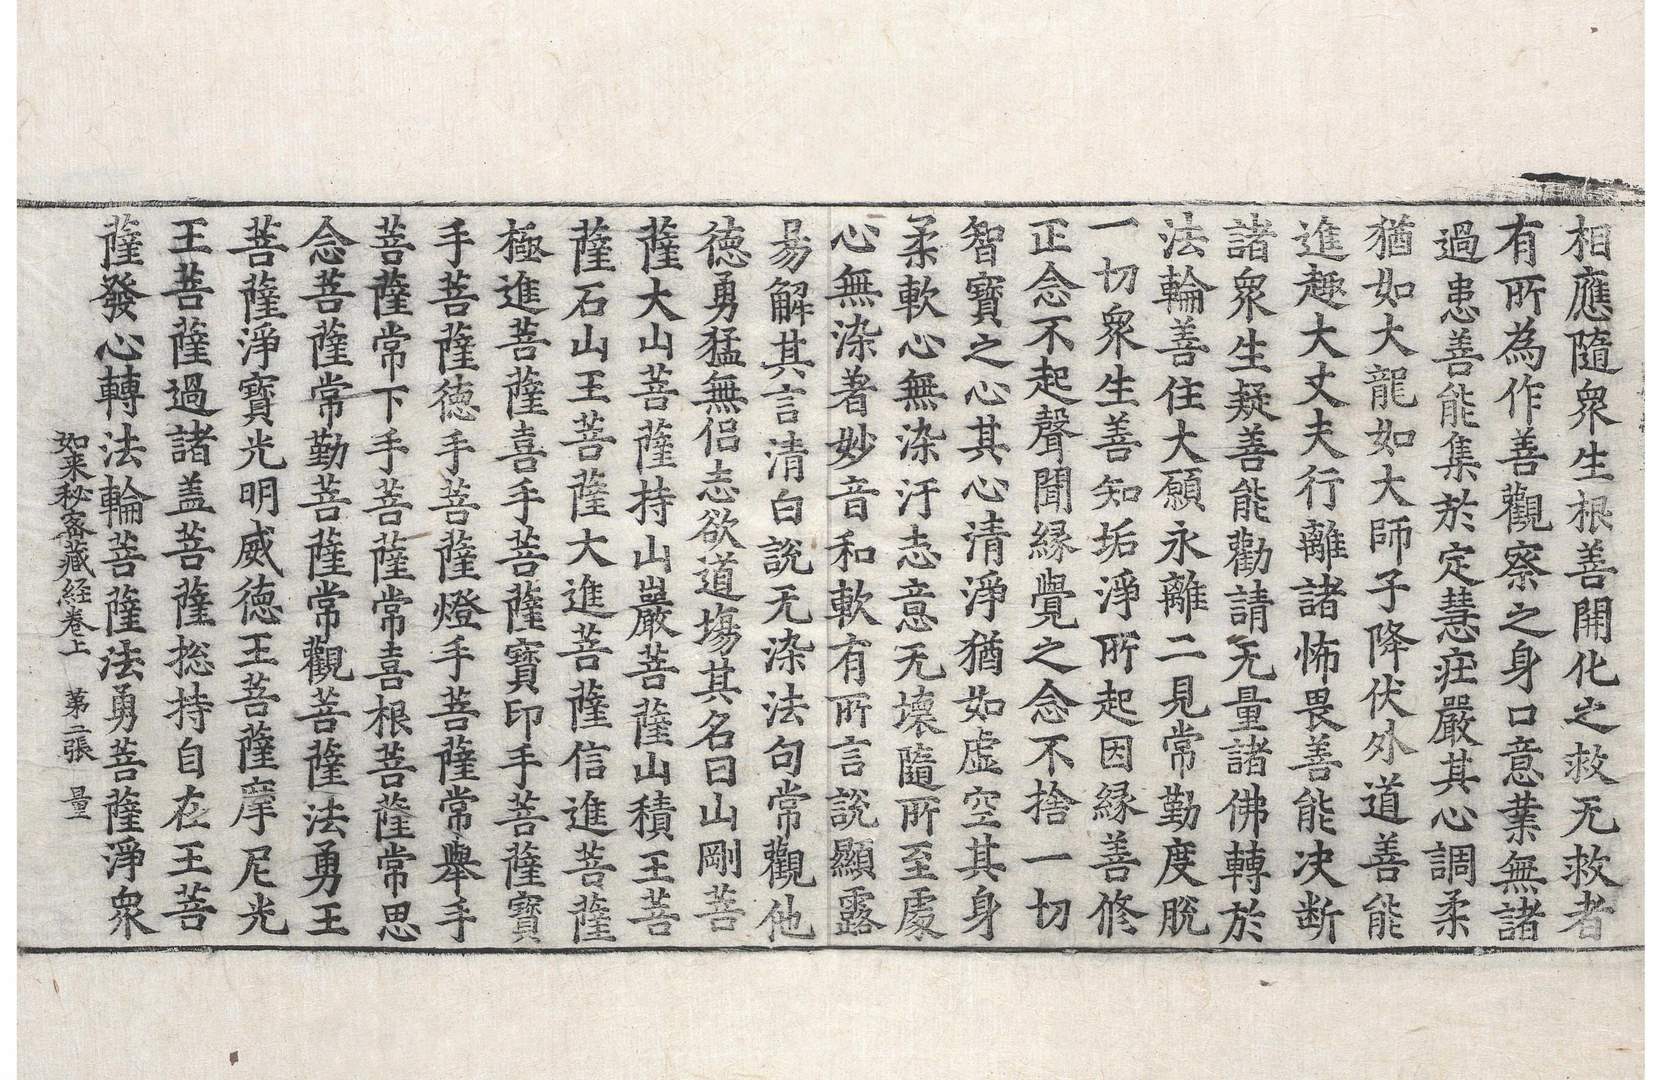 相應隨衆生根善開化之救无救者
有所為作善觀察之身口意業無諸
過患善能集於定慧疘嚴其心調柔
猶如大龍如大師子降伏外道善能
進趣大丈夫行離諸怖畏善能决断
諸衆生疑善能勸請无量諸佛轉於
法輪善住大願永離二見常勤度脫
一切衆生善知垢淨所起因緣善修
正念不起聲聞緣覺之念不捨一切
智寶之心其心清淨猶如虛空其身
柔軟心無染汙志意无壞隨所至處
心無染著妙音和軟有所言說顯露
易解其言清白說无染法句常觀他
德勇猛無侣志欲道場其名曰山剛菩
薩大山菩薩持山巖菩薩山積王菩
薩石山王菩薩大進菩薩信進菩薩
極進菩薩喜手菩薩寶印手菩薩寶
手菩薩德手菩薩燈手菩薩常舉手
菩薩常下手菩薩常喜根菩薩常思
念菩薩常勤菩薩常觀菩薩法勇王
菩薩淨寶光明威德王菩薩摩尼光
王菩薩過諸盖菩薩捴持自在王菩
薩發心轉法輪菩薩法勇菩薩淨衆
如来秘密藏経卷上 第二張 量